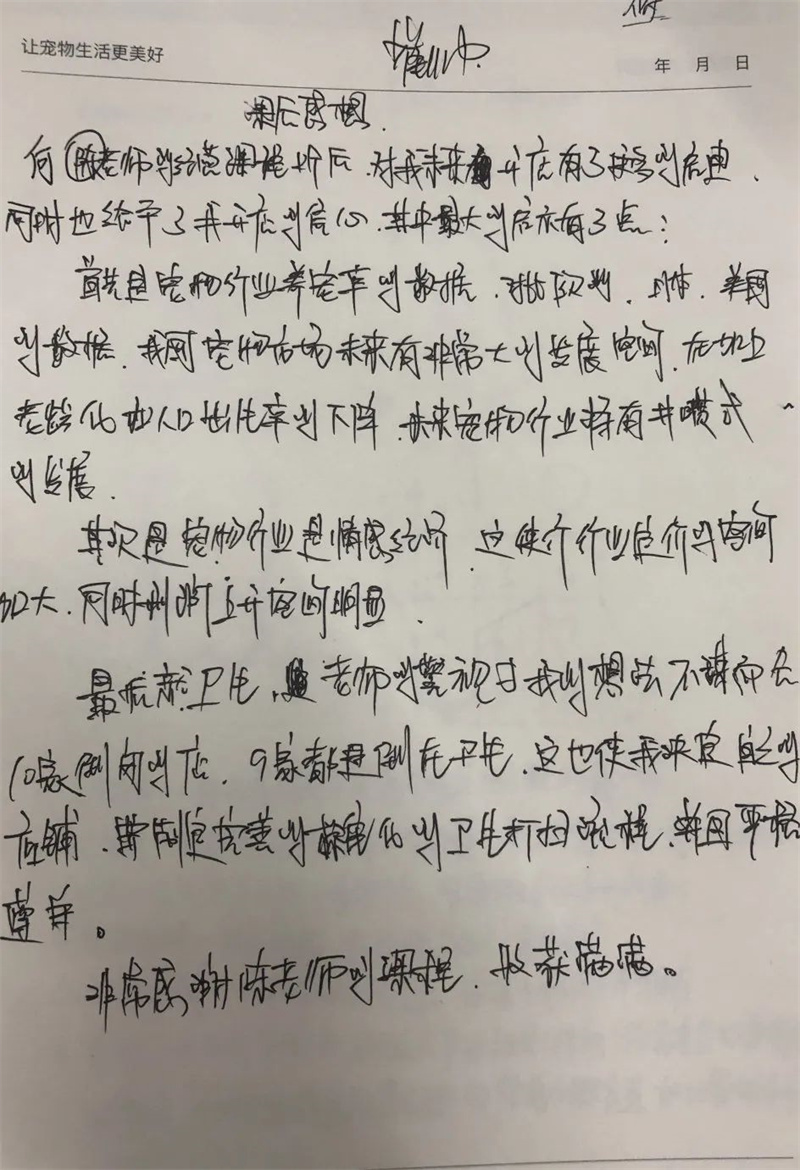 让宠物生活更美好
年 月 日
课后感想.
何陈老师的经营课程听后,对我未来开店有了很多的启迪,
同时也给予了我开店的信心.其中最大的启示有3点:
首先是宠物行业养宠率的数据.对比欧洲.日本.美国
的数据.我国宠物市场未来有非常大的发展空间.在加上
老龄化和人口出生率的下降.未来宠物行业将有井喷式
的发展.
其次是宠物行业是情感经济.这使个行业定价的空间
加大.同时利润上升空间明显.
最后就卫生.是老师的警视与我的想法不谋而合
10家倒闭的店.9家都是倒在卫生.这也使我决定自己的
店铺.要制定完善的标准化的卫生打扫流程.并因严格
遵守。
非常感谢陈老师的课程.收获满满。